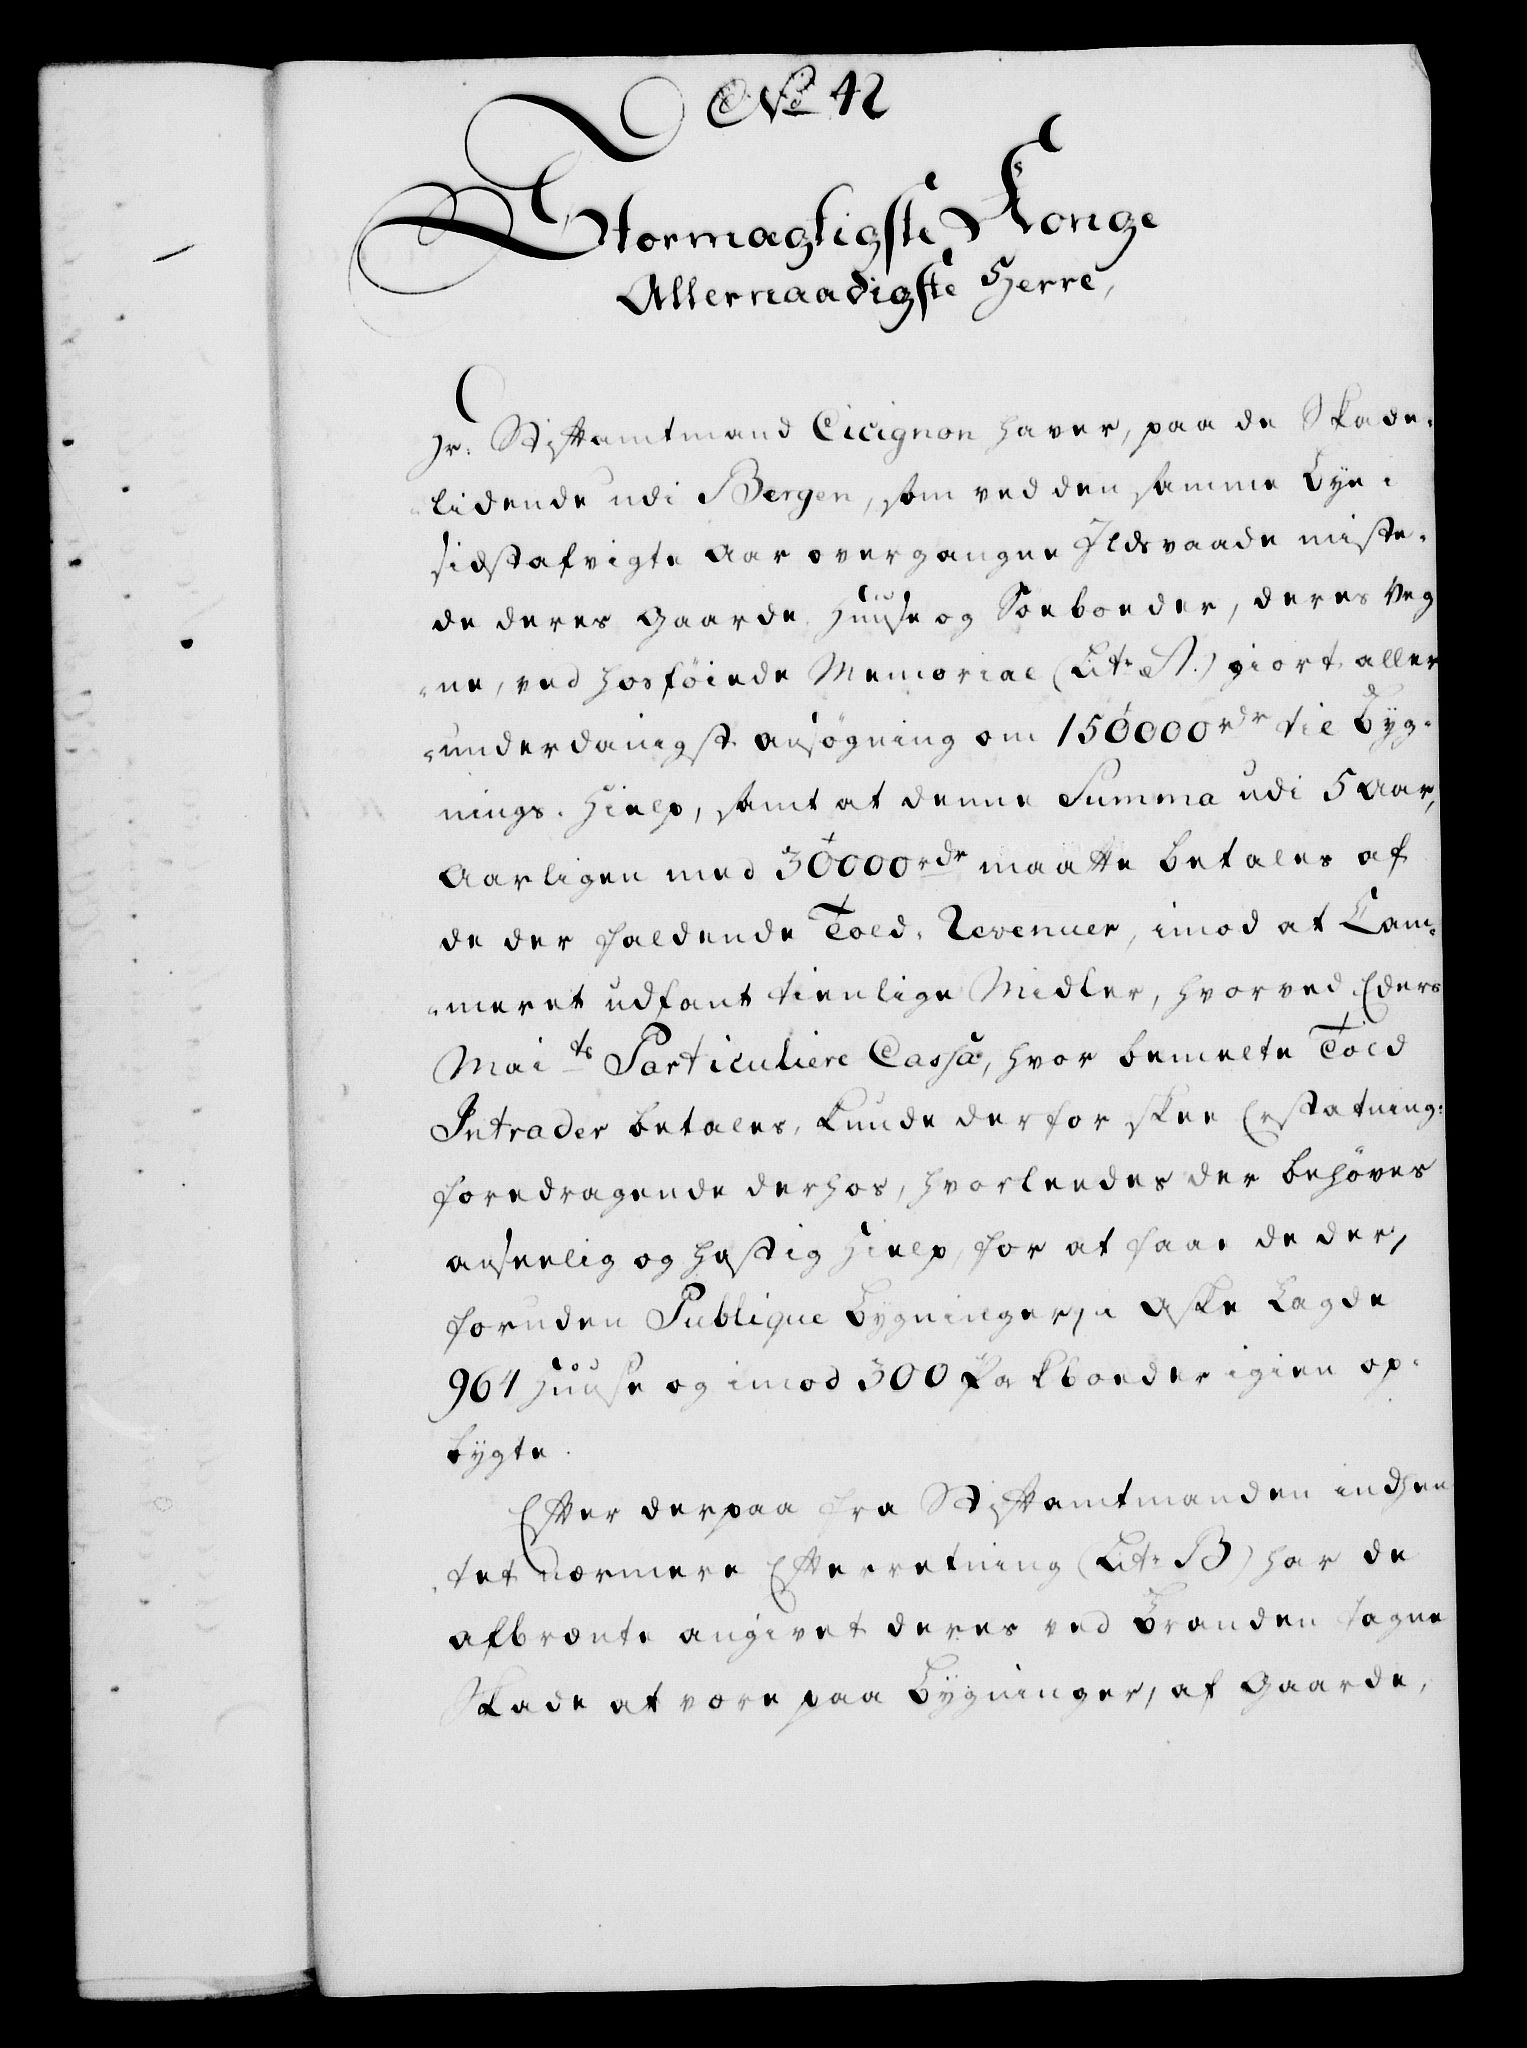 No 42
Stormægtigste Konge
Allernaadigste Herre,
Hr. Stiftamtmand Cicignon haver, paa de Skade-
lidende udi Bergen, som ved den samme Bye i
sidstafvigte Aar overgangne Ildsvaade miste-
de deres Gaarde Huuse og Søeboeder, deres Veg
-ne, ved hosføiede Memorial (Litr A.) giort aller
-underdanigst ansøgning om 150000 rdr til Byg-
nings-Hielp, samt at denne Summa udi 5 Aar,
Aarligen med 30000 rdr maatte betales af
de der faldende Told-Revenuer, imod at Cam-
-meret udfant tienlige Midler, hvorved Eders
Maits Particuliere Cassa, hvor bemelte Told
Intrader betales, kunde derfor skee Erstatning:
foredragende derhos, hvorledes der behøves
anseelig og hastig Hielp, for at faae de der,
foruden Publique Bygninger, i Aske Lagde
964 Huuse og imod 300 Pakboeder igien op-
bygte.
Efter derpaa fra Stiftamtmanden indhen
-tet nærmere Efterretning (Litr B) har de
afbrænte angivet deres ved Branden tagne
Skade at være paa Bygninger, af Gaarde,